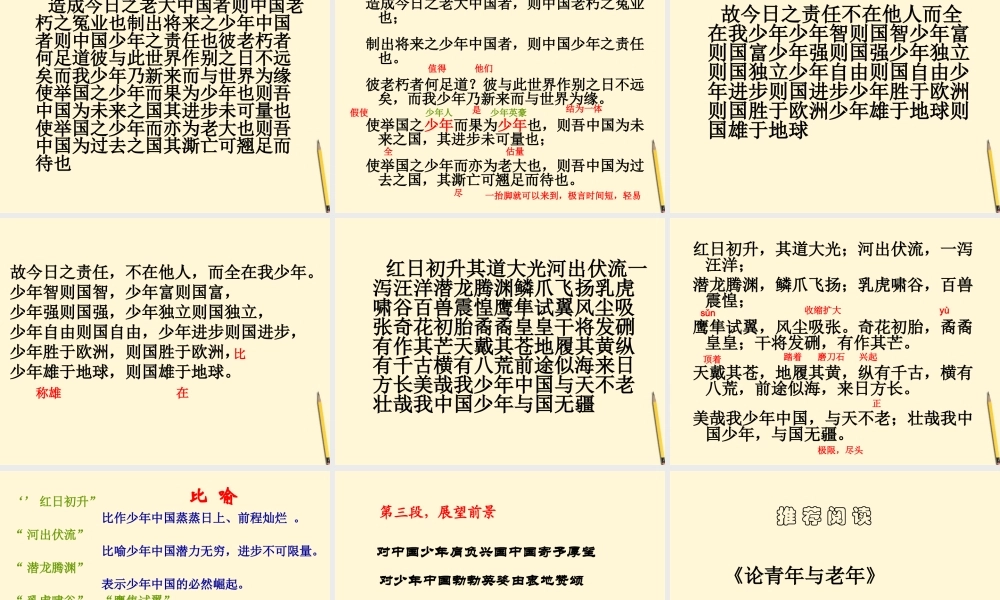 造成今日之老大中国者则中国老
朽之冤业也制出将来之少年中国
者则中国少年之责任也彼老朽者
何足道彼与此世界作别之日不远
矣而我少年乃新来而与世界为缘
使举国之少年而果为少年也则吾
中国为未来之国其进步未可量也
使举国之少年而亦为老大也则吾
中国为过去之国其澌亡可翘足而
待也
造成今日之老大中国者，则中国老朽之冤业
也；
制出将来之少年中国者，则中国少年之责任
也。
值得 他们
彼老朽者何足道？彼与此世界作别之日不远
矣，而我少年乃新来而与世界为缘。
假使 少年人 是 少年英豪 结为一体
使举国之少年而果为少年也，则吾中国为未
来之国，其进步未可量也；
全 估量
使举国之少年而亦为老大也，则吾中国为过
去之国，其澌亡可翘足而待也。
尽 一抬脚就可以来到，极言时间短，轻易
故今日之责任不在他人而全
在我少年少年智则国智少年富
则国富少年强则国强少年独立
则国独立少年自由则国自由少
年进步则国进步少年胜于欧洲
则国胜于欧洲少年雄于地球则
国雄于地球
故今日之责任，不在他人，而全在我少年。
少年智则国智，少年富则国富，
少年强则国强，少年独立则国独立，
少年自由则国自由，少年进步则国进步，
少年胜于欧洲，则国胜于欧洲，比
少年雄于地球，则国雄于地球。
称雄 在
红日初升其道大光河出伏流一
泻汪洋潜龙腾渊鳞爪飞扬乳虎
啸谷百兽震惶鹰隼试翼风尘吸
张奇花初胎矞矞皇皇干将发硎
有作其芒天戴其苍地履其黄纵
有千古横有八荒前途似海来日
方长美哉我少年中国与天不老
壮哉我中国少年与国无疆
红日初升，其道大光；河出伏流，一泻
汪洋；
潜龙腾渊，鳞爪飞扬；乳虎啸谷，百兽
震惶；
sǔn 收缩扩大 yù
鹰隼试翼，风尘吸张。奇花初胎，矞矞
皇皇；干将发硎，有作其芒。
顶着 踏着 磨刀石 兴起
天戴其苍，地履其黄，纵有千古，横有
八荒，前途似海，来日方长。
正
美哉我少年中国，与天不老；壮哉我中
国少年，与国无疆。
极限，尽头
比 喻
‘’ 红日初升”
比作少年中国蒸蒸日上、前程灿烂 。
“ 河出伏流”
比喻少年中国潜力无穷，进步不可限量。
“ 潜龙腾渊”
表示少年中国的必然崛起。
“ 乳虎啸谷” “鹰隼试翼”
第三段，展望前景
对中国少年肩负兴国中国寄予厚望
对少年中国勃勃英姿由衷地赞颂
推荐阅读
《论青年与老年》